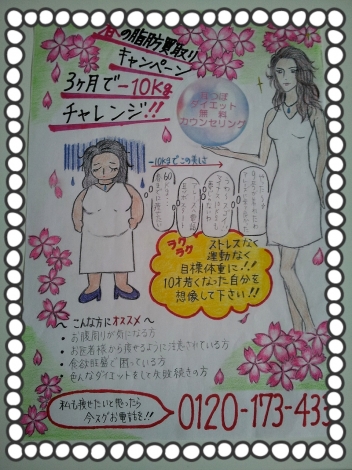 春の脂肪買取り
キャンペーン
3ヶ月で-10Kg
チャレンジ!!
耳つぼ
ダイエット
無料
カウンセリング
-10Kgまでこの美しさ
ラクラク
ストレスなく
運動なく
目標体重に!!
10才若くなった自分を
想像して下さい!!
～こんな方にオススメ～
・お腹周りが気になる方
・お医者様から痩せるように注意されている方
・食欲旺盛で困っている方
・色んなダイエットをして失敗続きの方
私も痩せたいと思ったら
今スグお電話を!!
0120-173-433